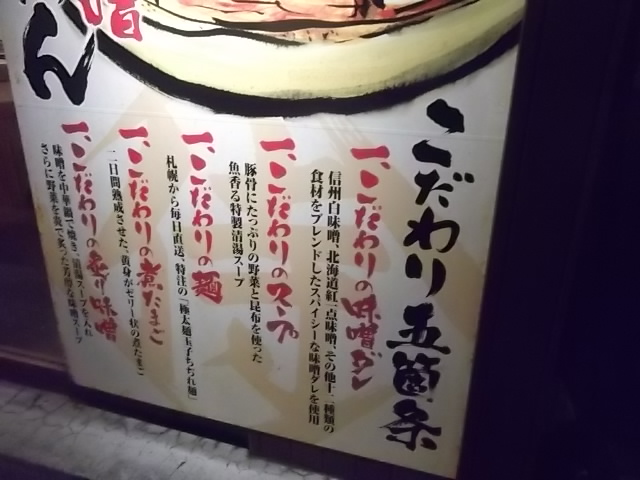 こだわり五箇条
一、こだわりの味噌ダレ
信州白味噌、北海道紅一点味噌、その他十二種類の
食材をブレンドしたスパイシーな味噌ダレを使用
一、こだわりのスープ
豚骨にたっぷりの野菜と昆布を使った
魚香る特製清湯スープ
一、こだわりの麺
札幌から毎日直送、特注の「極太麺玉子ちぢれ麺」
一、こだわりの煮たまご
二日間熟成させた、黄身がゼリー状の煮たまご
一、こだわりの炙り味噌
味噌を中華鍋で焼き、清湯スープを入れ
さらに野菜を炎で炙った芳醇な味噌スープ
噌
ん